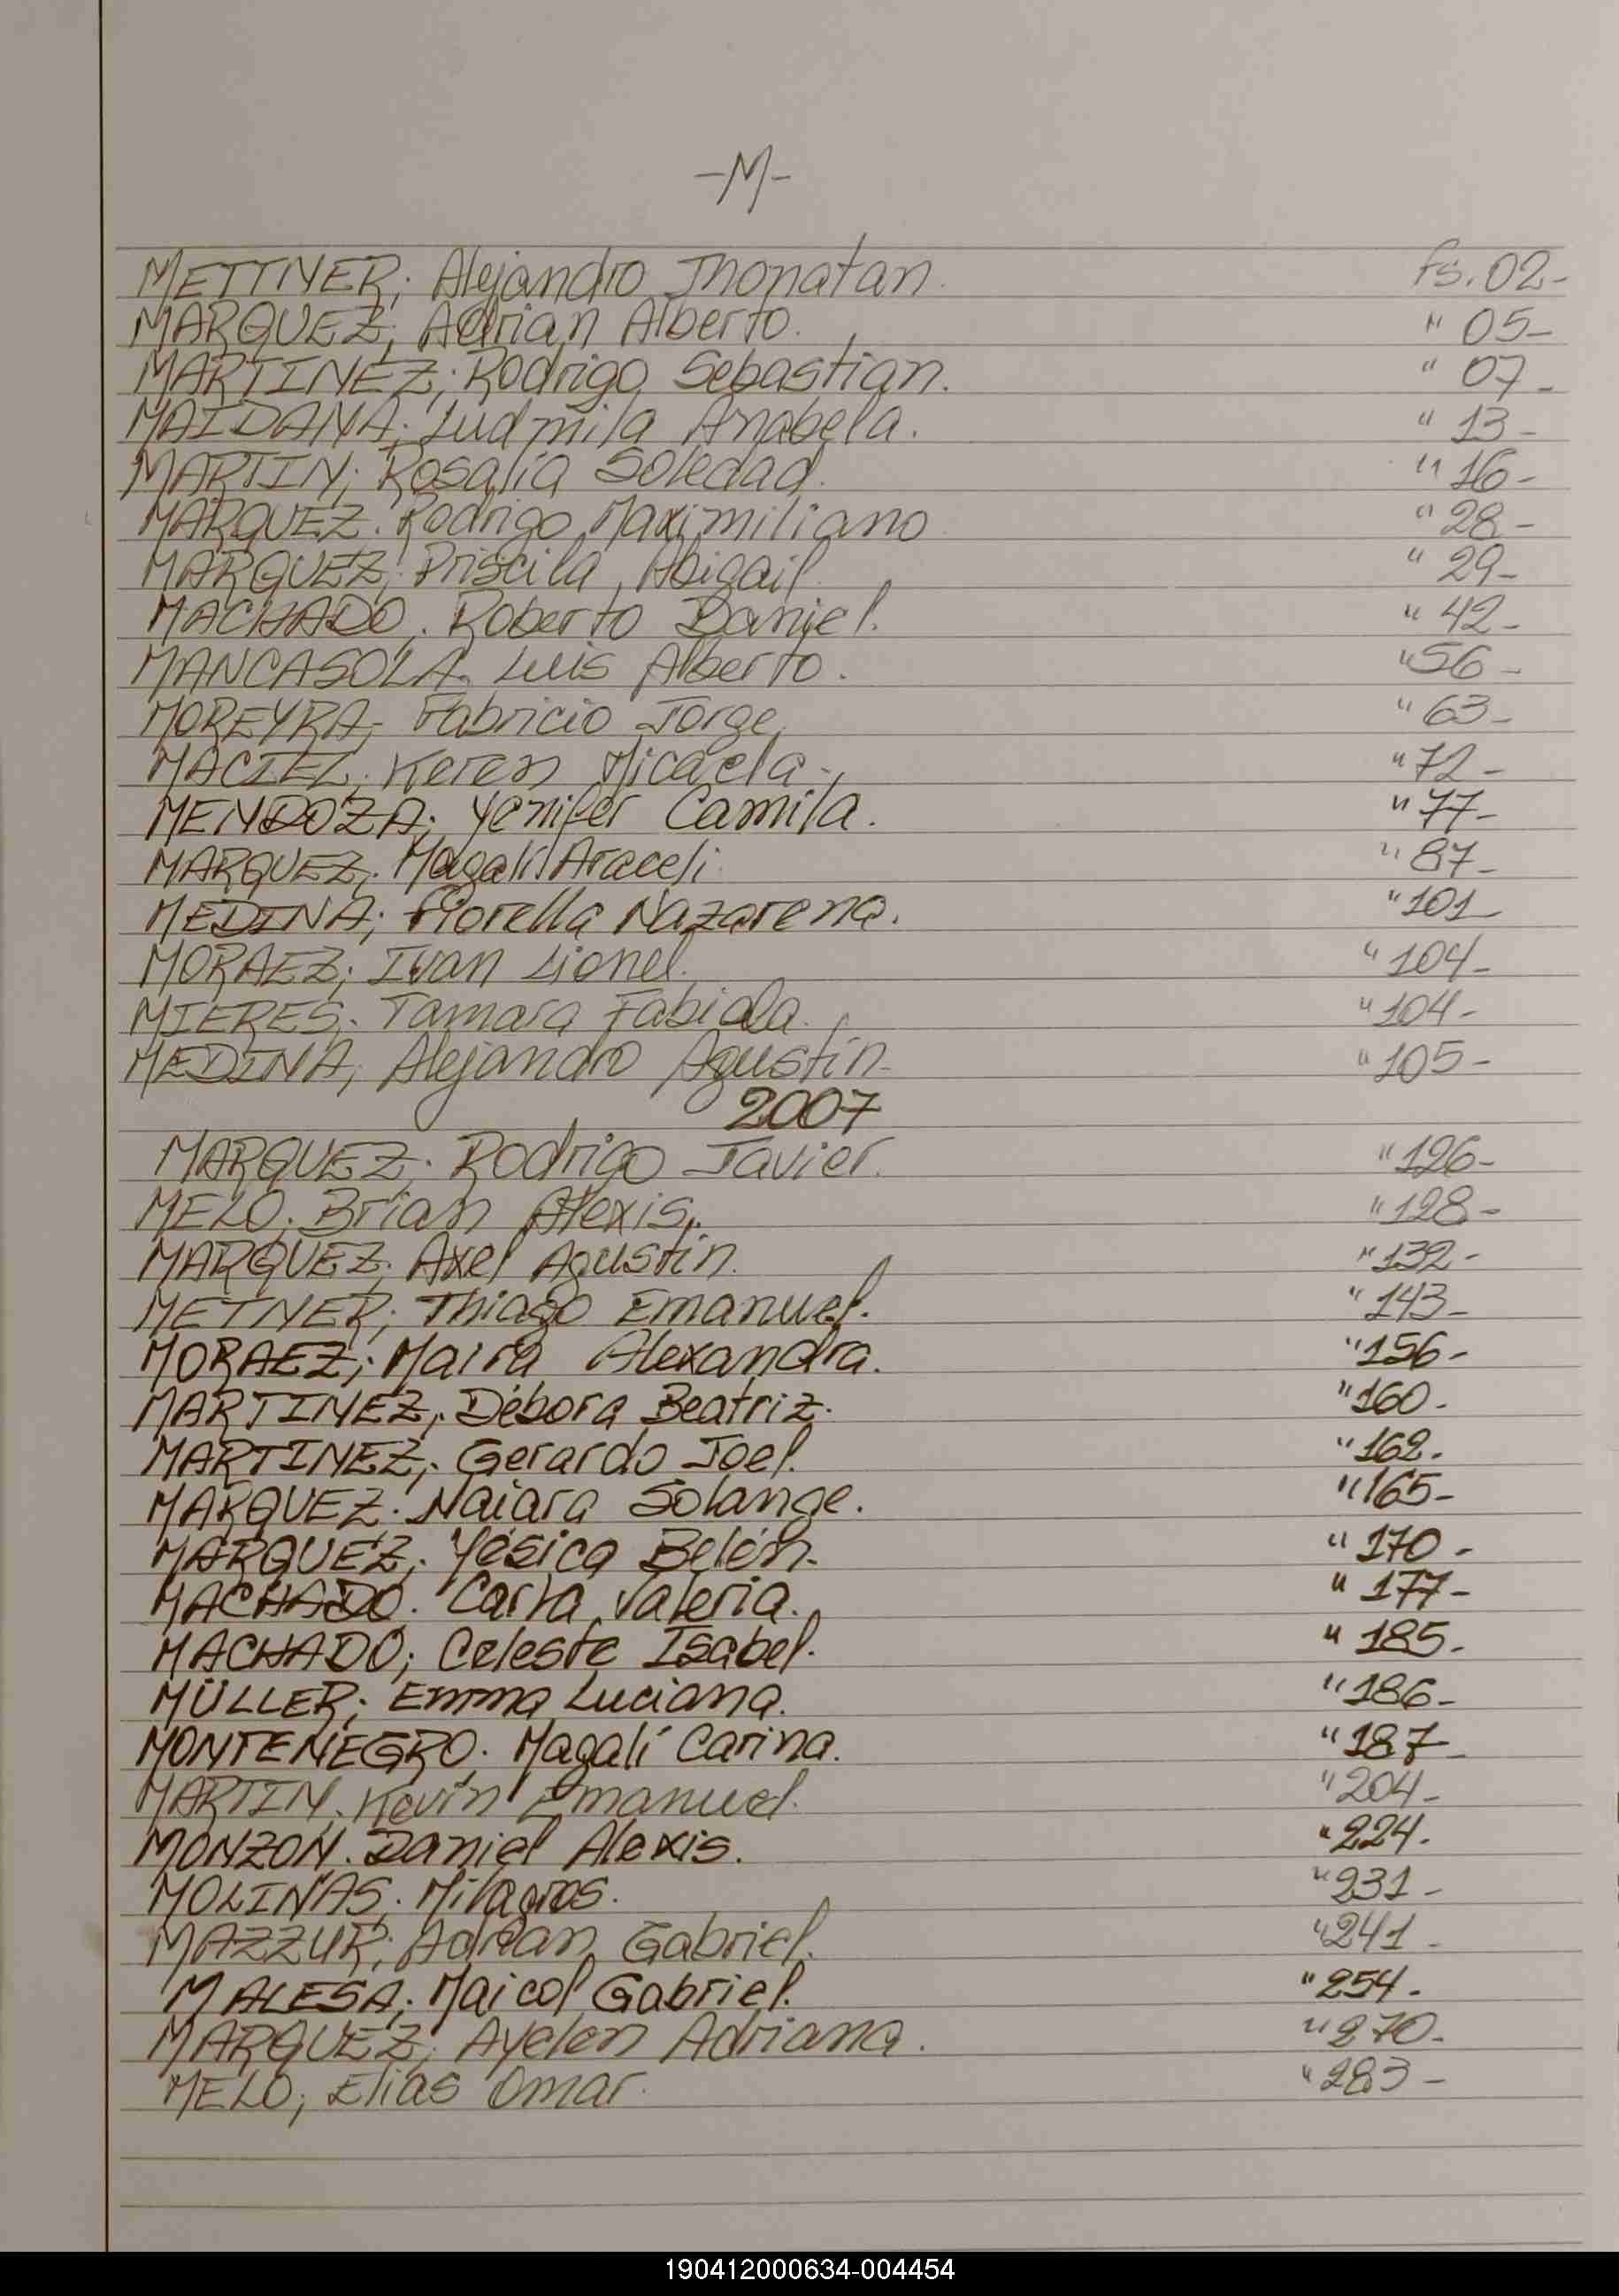 -M-
METTNER; Alejandro Jhonatan. fs. 02-
MARQUEZ; Adrian Alberto. " 05-
MARTINEZ; Rodrigo Sebastian. " 07-
MAIDANA; Ludmila Anabela. " 13-
MARTIN; Rosalía Soledad. " 16-
MARQUEZ. Rodrigo Maximiliano " 28-
MARQUEZ; Priscila Abigail. " 29-
MACHADO. Roberto Daniel. " 42-
MANCASOLA. Luis Alberto. " 56-
MOREYRA; Fabricio Jorge. " 63-
MACIEL. Keren Micaela-. " 72-
MENDOZA; Yenifer Camila. " 77-
MARQUEZ; Magalí Araceli. " 87-
MEDINA; Fiorella Nazarena. " 101
MORAEZ; Ivan Lionel. " 104-
MIERES. Tamara Fabiola. " 104-
MEDINA, Alejandro Agustín- " 105-
2007
MARQUEZ. Rodrigo Javier. " 126-
MELO. Brian Alexis. " 128-
MARQUEZ; Axel Agustín. " 132-
METNER; Thiago Emanuel. " 143-
MORAEZ; Maira Alexandra. " 156-
MARTINEZ; Débora Beatriz. " 160-
MARTINEZ; Gerardo Joel. " 162.
MARQUEZ. Naiara Solange. " 165-
MARQUEZ; Yésica Belén. " 170-
MACHADO. Carla Valeria. " 177-
MACHADO; Celeste Isabel. " 185-
MÜLLER; Emma Luciana. " 186-
MONTENEGRO. Magalí Carina. " 187-
MARTIN. Kevin Emanuel. " 204-
MONZON. Daniel Alexis. " 224.
MOLINAS. Milagros. " 231-
MAZZUR; Adrian Gabriel. " 241-
MALESA; Maicol Gabriel. " 254.
MARQUEZ; Ayelen Adriana. " 270-
MELO; Elias Omar. " 283-
190412000634-004454